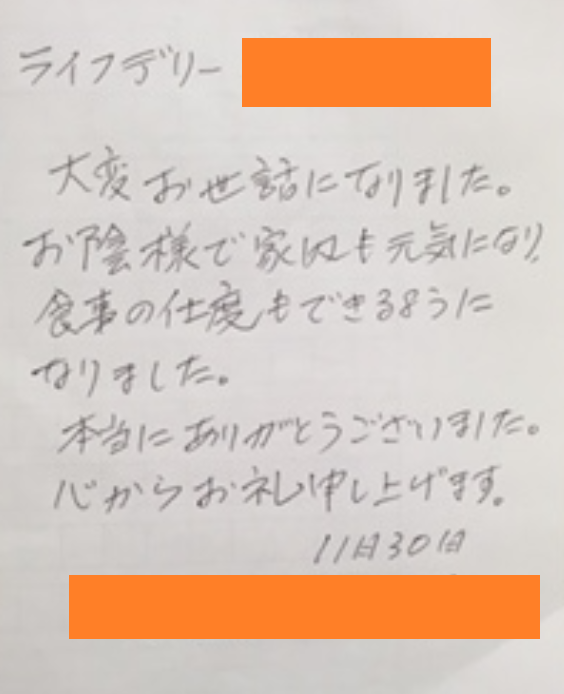 ライフデリー
大変お世話になりました。
お陰様で家内も元気になり、
食事の仕度もできるように
なりました。
本当にありがとうございました。
心からお礼申し上げます。
11月30日